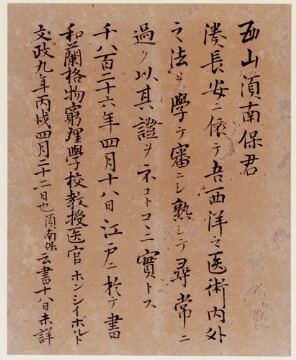 西山湏南保君
湊長安ニ依テ吾西洋之医術内外
之法ヲ學テ審ニシ熟シテ尋常ニ
過ク以其證ヲネコトコニ實トス
千八百二十六年四月十八日江戸ニ於テ書
和蘭格物窮理學校教授医官ホンシイボルト
文政九年丙戌四月二十二日也湏南保云書十八日未詳